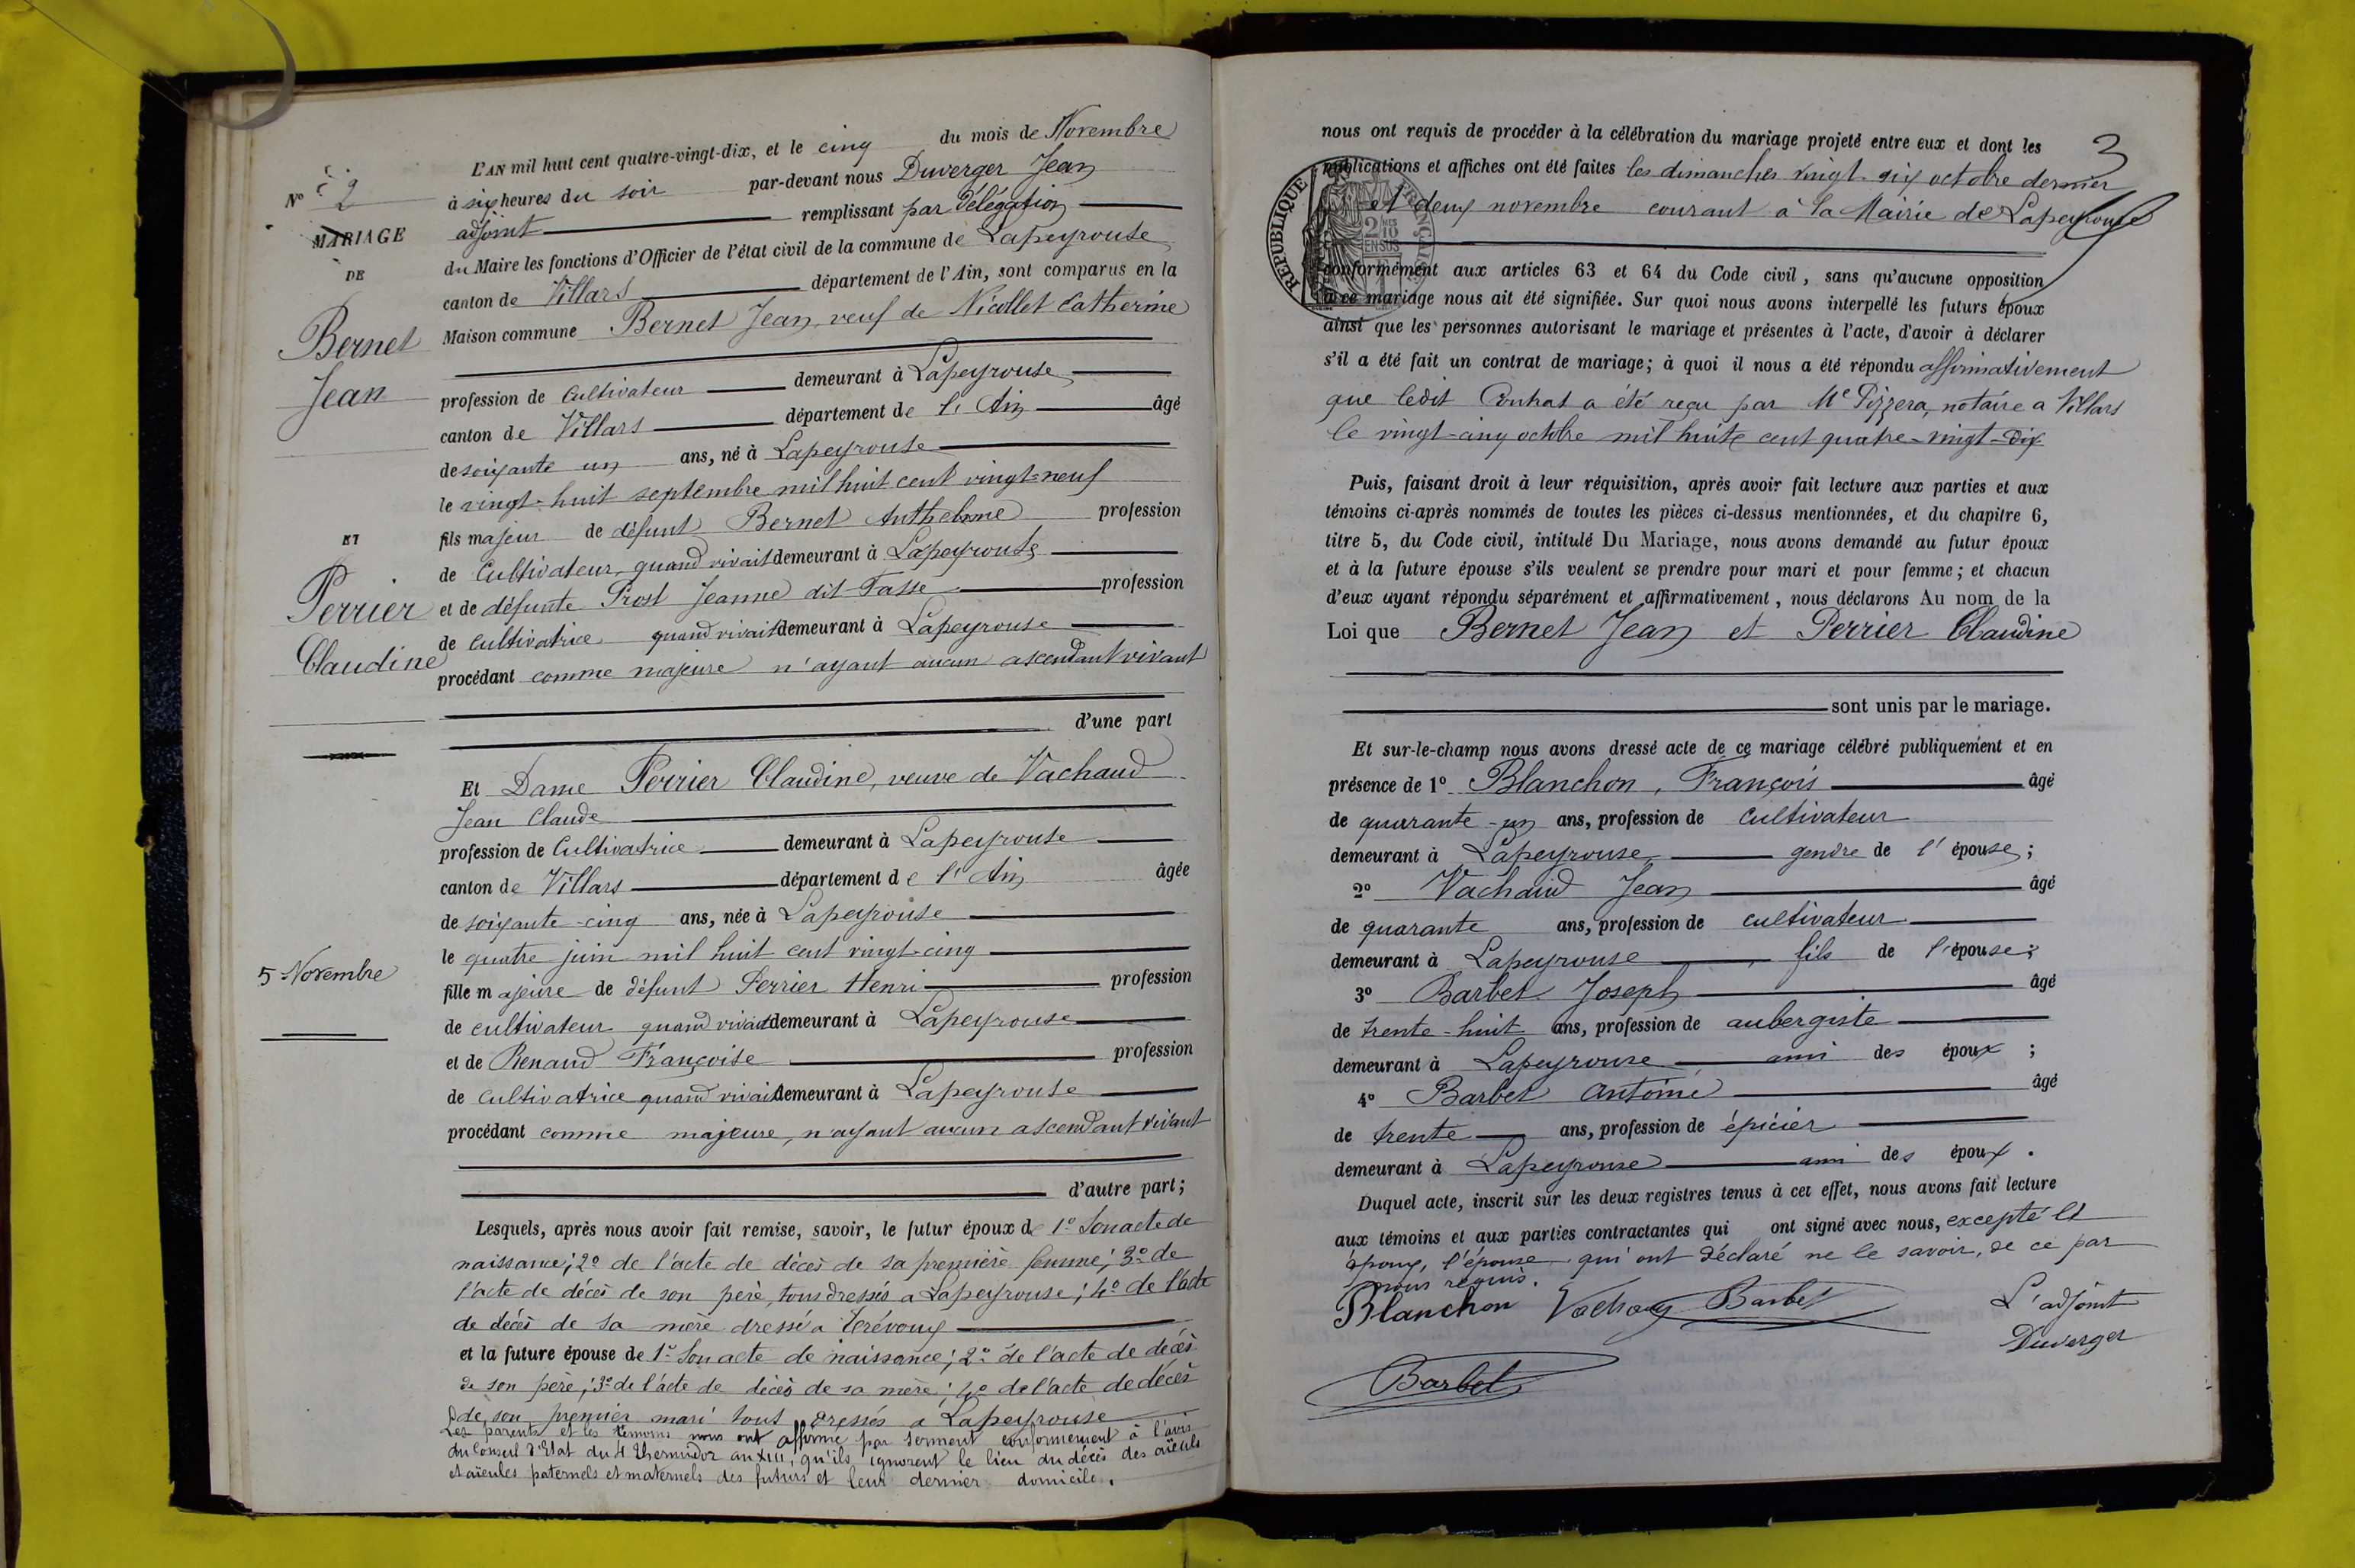 N° 2
MARIAGE
DE
Bernet
Jean
ET
Perrier
Claudine
5 Novembre
L'AN mil huit cent quatre-vingt-dix, et le cinq du mois de Novembre
à six heures du soir par-devant nous Duverger Jean
adjoint remplissant par délégation
du Maire les fonctions d'Officier de l'état civil de la commune de Lapeyrouse
canton de Villars département de l'Ain, sont comparus en la
Maison commune Bernet Jean, veuf de Nicollet Catherine
profession de Cultivateur demeurant à Lapeyrouse
canton de Villars département de l'Ain âgé
de soixante un ans, né à Lapeyrouse
le vingt-huit septembre mil huit cent vingt-neuf
fils majeur de défunt Bernet Anthelme profession
de Cultivateur, quand vivait demeurant à Lapeyrouse
et de défunte Prost Jeanne dit Tasse profession
de cultivatrice quand vivait demeurant à Lapeyrouse
procédant comme majeure n'ayant aucun ascendant vivant
d'une part
Et Dame Perrier Claudine, veuve de Vachaud
Jean Claude
profession de Cultivatrice demeurant à Lapeyrouse
canton de Villars département de l'Ain âgée
de soixante-cinq ans, née à Lapeyrouse
le quatre juin mil huit cent vingt-cinq
fille majeure de défunt Perrier Henri profession
de cultivateur quand vivait demeurant à Lapeyrouse
et de Renaud Françoise profession
de Cultivatrice quand vivait demeurant à Lapeyrouse
procédant comme majeure, n'ayant aucun ascendant vivant
d'autre part;
Lesquels, après nous avoir fait remise, savoir, le futur époux de 1° Son acte de
naissance; 2° de l'acte de décès de sa première femme; 3° de
l'acte de décès de son père, tous dressés a Lapeyrouse; 4° de l'acte
de décès de sa mère dressé a Trévoux
et la future épouse de 1° Son acte de naissance; 2° de l'acte de décès
de son père; 3° de l'acte de décès de sa mère; 4° de l'acte de décès
de son premier mari tous dressés a Lapeyrouse
Les parents et les témoins nous ont affirmé par serment conformément à l'avis
du Conseil d'Etat du 4 thermidor an XIII, qu'ils ignorent le lieu du décès des aïeuls
et aïeules paternels et maternels des futurs et leur dernier domicile.
3
RÉPUBLIQUE FRANÇAISE
2/10 EN SUS
nous ont requis de procéder à la célébration du mariage projeté entre eux et dont les
publications et affiches ont été faites les dimanches vingt-six octobre dernier
et deux novembre courant à la Mairie de Lapeyrouse
conformément aux articles 63 et 64 du Code civil, sans qu'aucune opposition
à ce mariage nous ait été signifiée. Sur quoi nous avons interpellé les futurs époux
ainsi que les personnes autorisant le mariage et présentes à l'acte, d'avoir à déclarer
s'il a été fait un contrat de mariage; à quoi il nous a été répondu affirmativement
que ledit Contrat a été reçu par Me Pizzera, notaire a Villars
le vingt-cinq octobre mil huit cent quatre-vingt-dix
Puis, faisant droit à leur réquisition, après avoir fait lecture aux parties et aux
témoins ci-après nommés de toutes les pièces ci-dessus mentionnées, et du chapitre 6,
titre 5, du Code civil, intitulé Du Mariage, nous avons demandé au futur époux
et à la future épouse s'ils veulent se prendre pour mari et pour femme; et chacun
d'eux ayant répondu séparément et affirmativement, nous déclarons Au nom de la
Loi que Bernet Jean et Perrier Claudine
sont unis par le mariage.
Et sur-le-champ nous avons dressé acte de ce mariage célébré publiquement et en
présence de 1° Blanchon, François âgé
de quarante-un ans, profession de Cultivateur
demeurant à Lapeyrouse gendre de l'épouse;
2° Vachaud Jean âgé
de quarante ans, profession de cultivateur
demeurant à Lapeyrouse fils de l'épouse;
3° Barbet Joseph âgé
de trente-huit ans, profession de aubergiste
demeurant à Lapeyrouse ami des époux;
4° Barbet Antoine âgé
de trente ans, profession de épicier
demeurant à Lapeyrouse ami des époux.
Duquel acte, inscrit sur les deux registres tenus à cet effet, nous avons fait lecture
aux témoins et aux parties contractantes qui ont signé avec nous, excepté les
époux, l'épouse qui ont déclaré ne le savoir, de ce par
nous requis.
Blanchon Vachaux Barbet L'adjoint
Duverger
Barbet